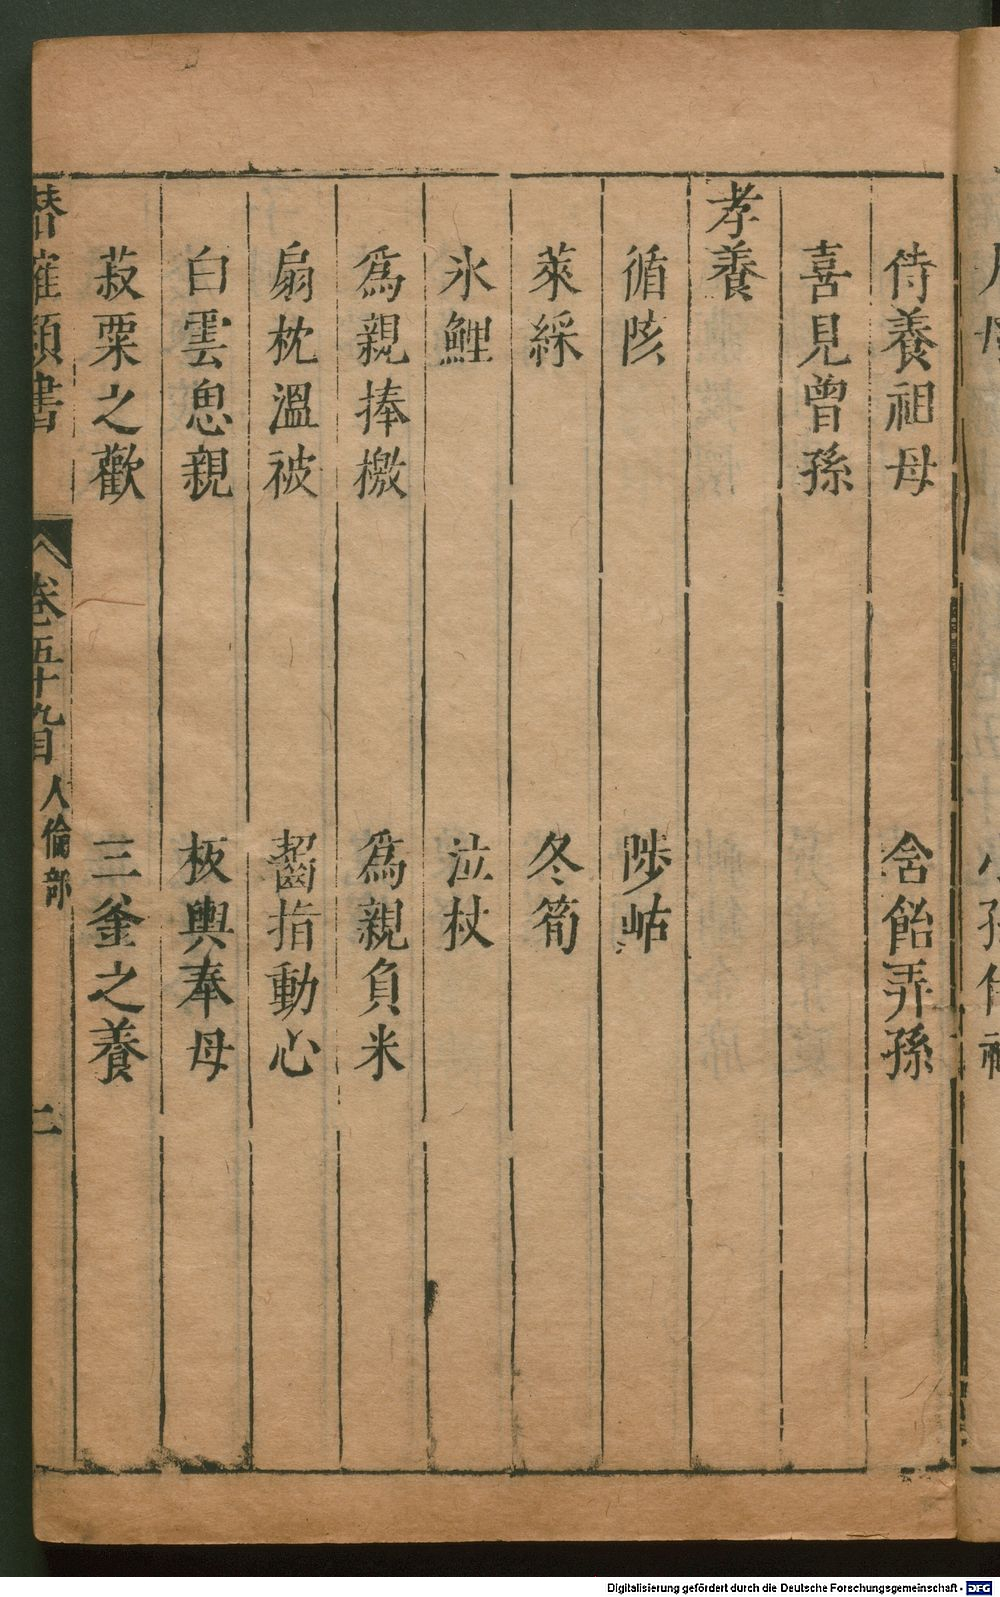 侍養祖母　含飴弄孫
喜見曾孫
孝養
循陔　陟岵
萊綵　冬筍
氷鯉　泣杖
爲親捧檄　爲親負米
扇枕溫被　齧指動心
白雲思親　板輿奉母
菽粟之歡　三釜之養
潛確類書　卷五十九目　人倫部　二
Digitalisierung gefördert durch die Deutsche Forschungsgemeinschaft - DFG